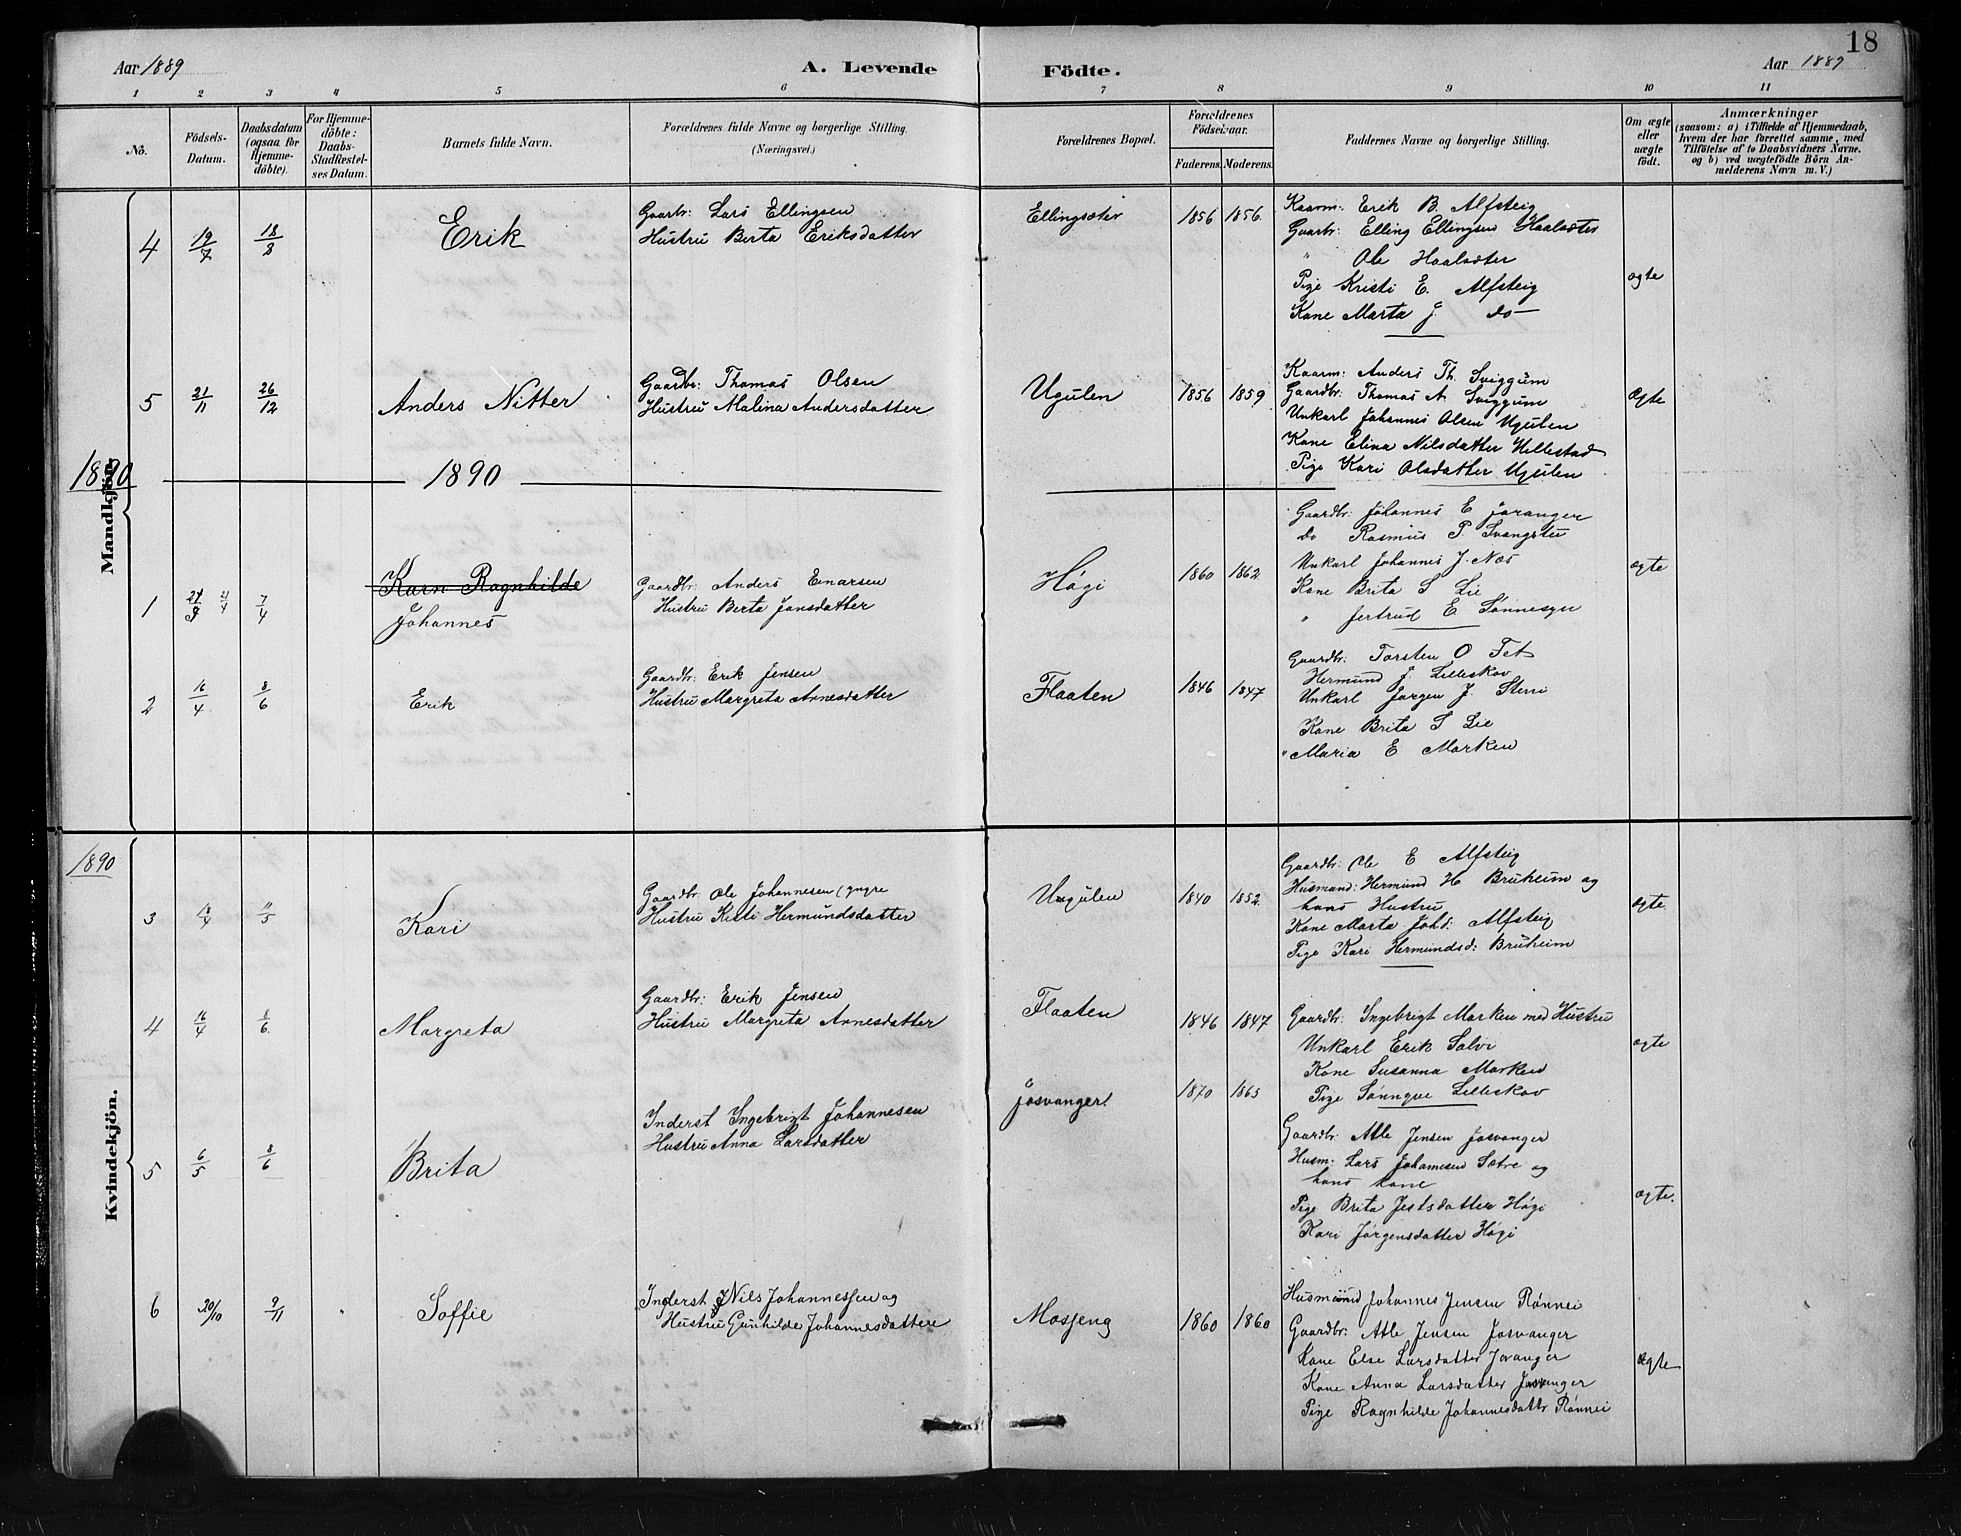 Aar 1889
A. Levende
Födte.
Aar 1889
18
1 2 3 4 5 6 7 8 9 10 11
No.
Födsels-Datum.
Daabsdatum (ogsaa for Hjemmedöbte).
For Hjemmedöbte: Daabs-Stadfæstelses Datum.
Barnets fulde Navn.
Forældrenes fulde Navne og borgerlige Stilling. (Næringsvei.)
Forældrenes Bopæl.
Forældrenes Födselsaar.
Faderens. Moderens.
Faddernes Navne og borgerlige Stilling.
Om ægte eller uægte födt.
Anmærkninger
(saasom: a) i Tilfælde af Hjemmedaab, hvem der har forrettet samme, med Tilföielse af to Daabsvidners Navne. og b) ved uægtefödte Börn Anmelderens Navn m. V.)
Mandkjön.
4 19/7 18/8 Erik
Gaarbr: Lars Ellingsen
Hustru Berta Eriksdatter
Ellingsæter 1856 1856
Kaarm: Erik B. Alfsteig
Gaarbr: Elling Ellingsen Haalæter
" Ole Haalæter
Pige Kristi E. Alfsteig
Kone Marta J do
ægte
5 21/11 26/12 Anders Nitter
Gaardbr: Thomas Olsen
Hustru Malina Andersdatter
Ugulen 1856 1859
Kaarm: Anders Th. Sviggum
Gaardbr: Thomas A Sviggum
Unkarl Johannes Olsen Ugulen
Kone Elina Nilsdatter Hillestad
Pige Kari Olsdatter Ugulen
Ægte
1890
1890
1 7/4 Karn Ragnhilde
Johannes
Gaardbr: Anders Einarsen
Hustru Berta Jansdatter
Högi 1860 1862
Gaardbr: Johannes E
do Rasmus P
Unkarl Johannes J. Næs
Kone Brita S Lie
" Jertrud E
ægte
2 16/4 8/6 Erik
Gaardbr: Erik Jensen
Hustru Margreta Arnesdatter
Flaaten 1846 1847
Gaardbr: Torsten O Fet
Hermund J. Lilleskov
Unkarl Jørgen J.
Kone Brita S Lie
" Maria E Marken
Kvindekjön.
1890
3 11/5 Kari
Gaardbr: Ole Johannesen (yngre
Hustru Kristi Hermundsdatter
Ugulen 1840 1852
Gaardbr: Ole E Alfsteig
Husmand: Hermund H Bruheim og
hans Hustru
Kone Marta Johd: Alfsteig
Pige Kari Hermundsd: Bruheim
ægte
4 16/4 8/6 Margreta
Gaardbr: Erik Jensen
Hustru Margreta Arnesdatter
Flaaten 1846 1847
Gaardbr: Ingebrigt Marken med Hustru
Unkarl Erik Salvi
Kone Susanna Marken
Pige Sønngue Lilleskov
ægte
5 6/5 8/6 Brita
Inderst Ingebrigt Johannesen
Hustru Anna Larsdatter
Josvanger 1870 1865
Gaardbr: Atle Jensen Josvanger
Husm: Lars Johannesen Sætre og
hans kone
Pige Brita Jestsdatter Högi
Kari Jørgensdatter Högi
ægte.
6 20/10 9/11 Soffie
Inderst Nils Johannessen og
Hustru Gunhilde Johannesdatter
Mosjeng 1860 1860
Husmand Johannes Jensen Rønnei
Gaardbr: Atle Jensen Josvanger
Kone Else Larsdatter
Kone Anna Larsdatter
Pige Ragnhilde Johannesdattr Rønnei
Ægte